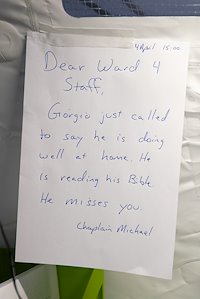 4 April 15:00
Dear Ward 4
Staff,
Giorgio just called
to say he is doing
well at home. He
is reading his Bible.
He misses you.
Chaplain Michael